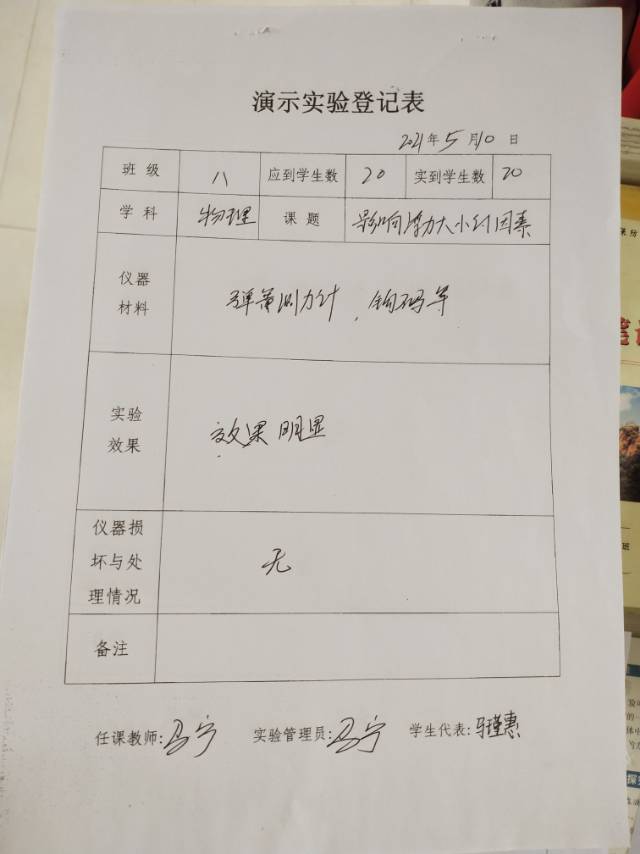 演示实验登记表
2021年5月10日
班级 八 应到学生数 20 实到学生数 20
学科 物理 课题 影响浮力大小的因素
仪器材料 弹簧测力计，钩码等
实验效果 效果明显
仪器损坏与处理情况 无
备注
任课教师:马宁 实验管理员:马宁 学生代表:马瑾惠